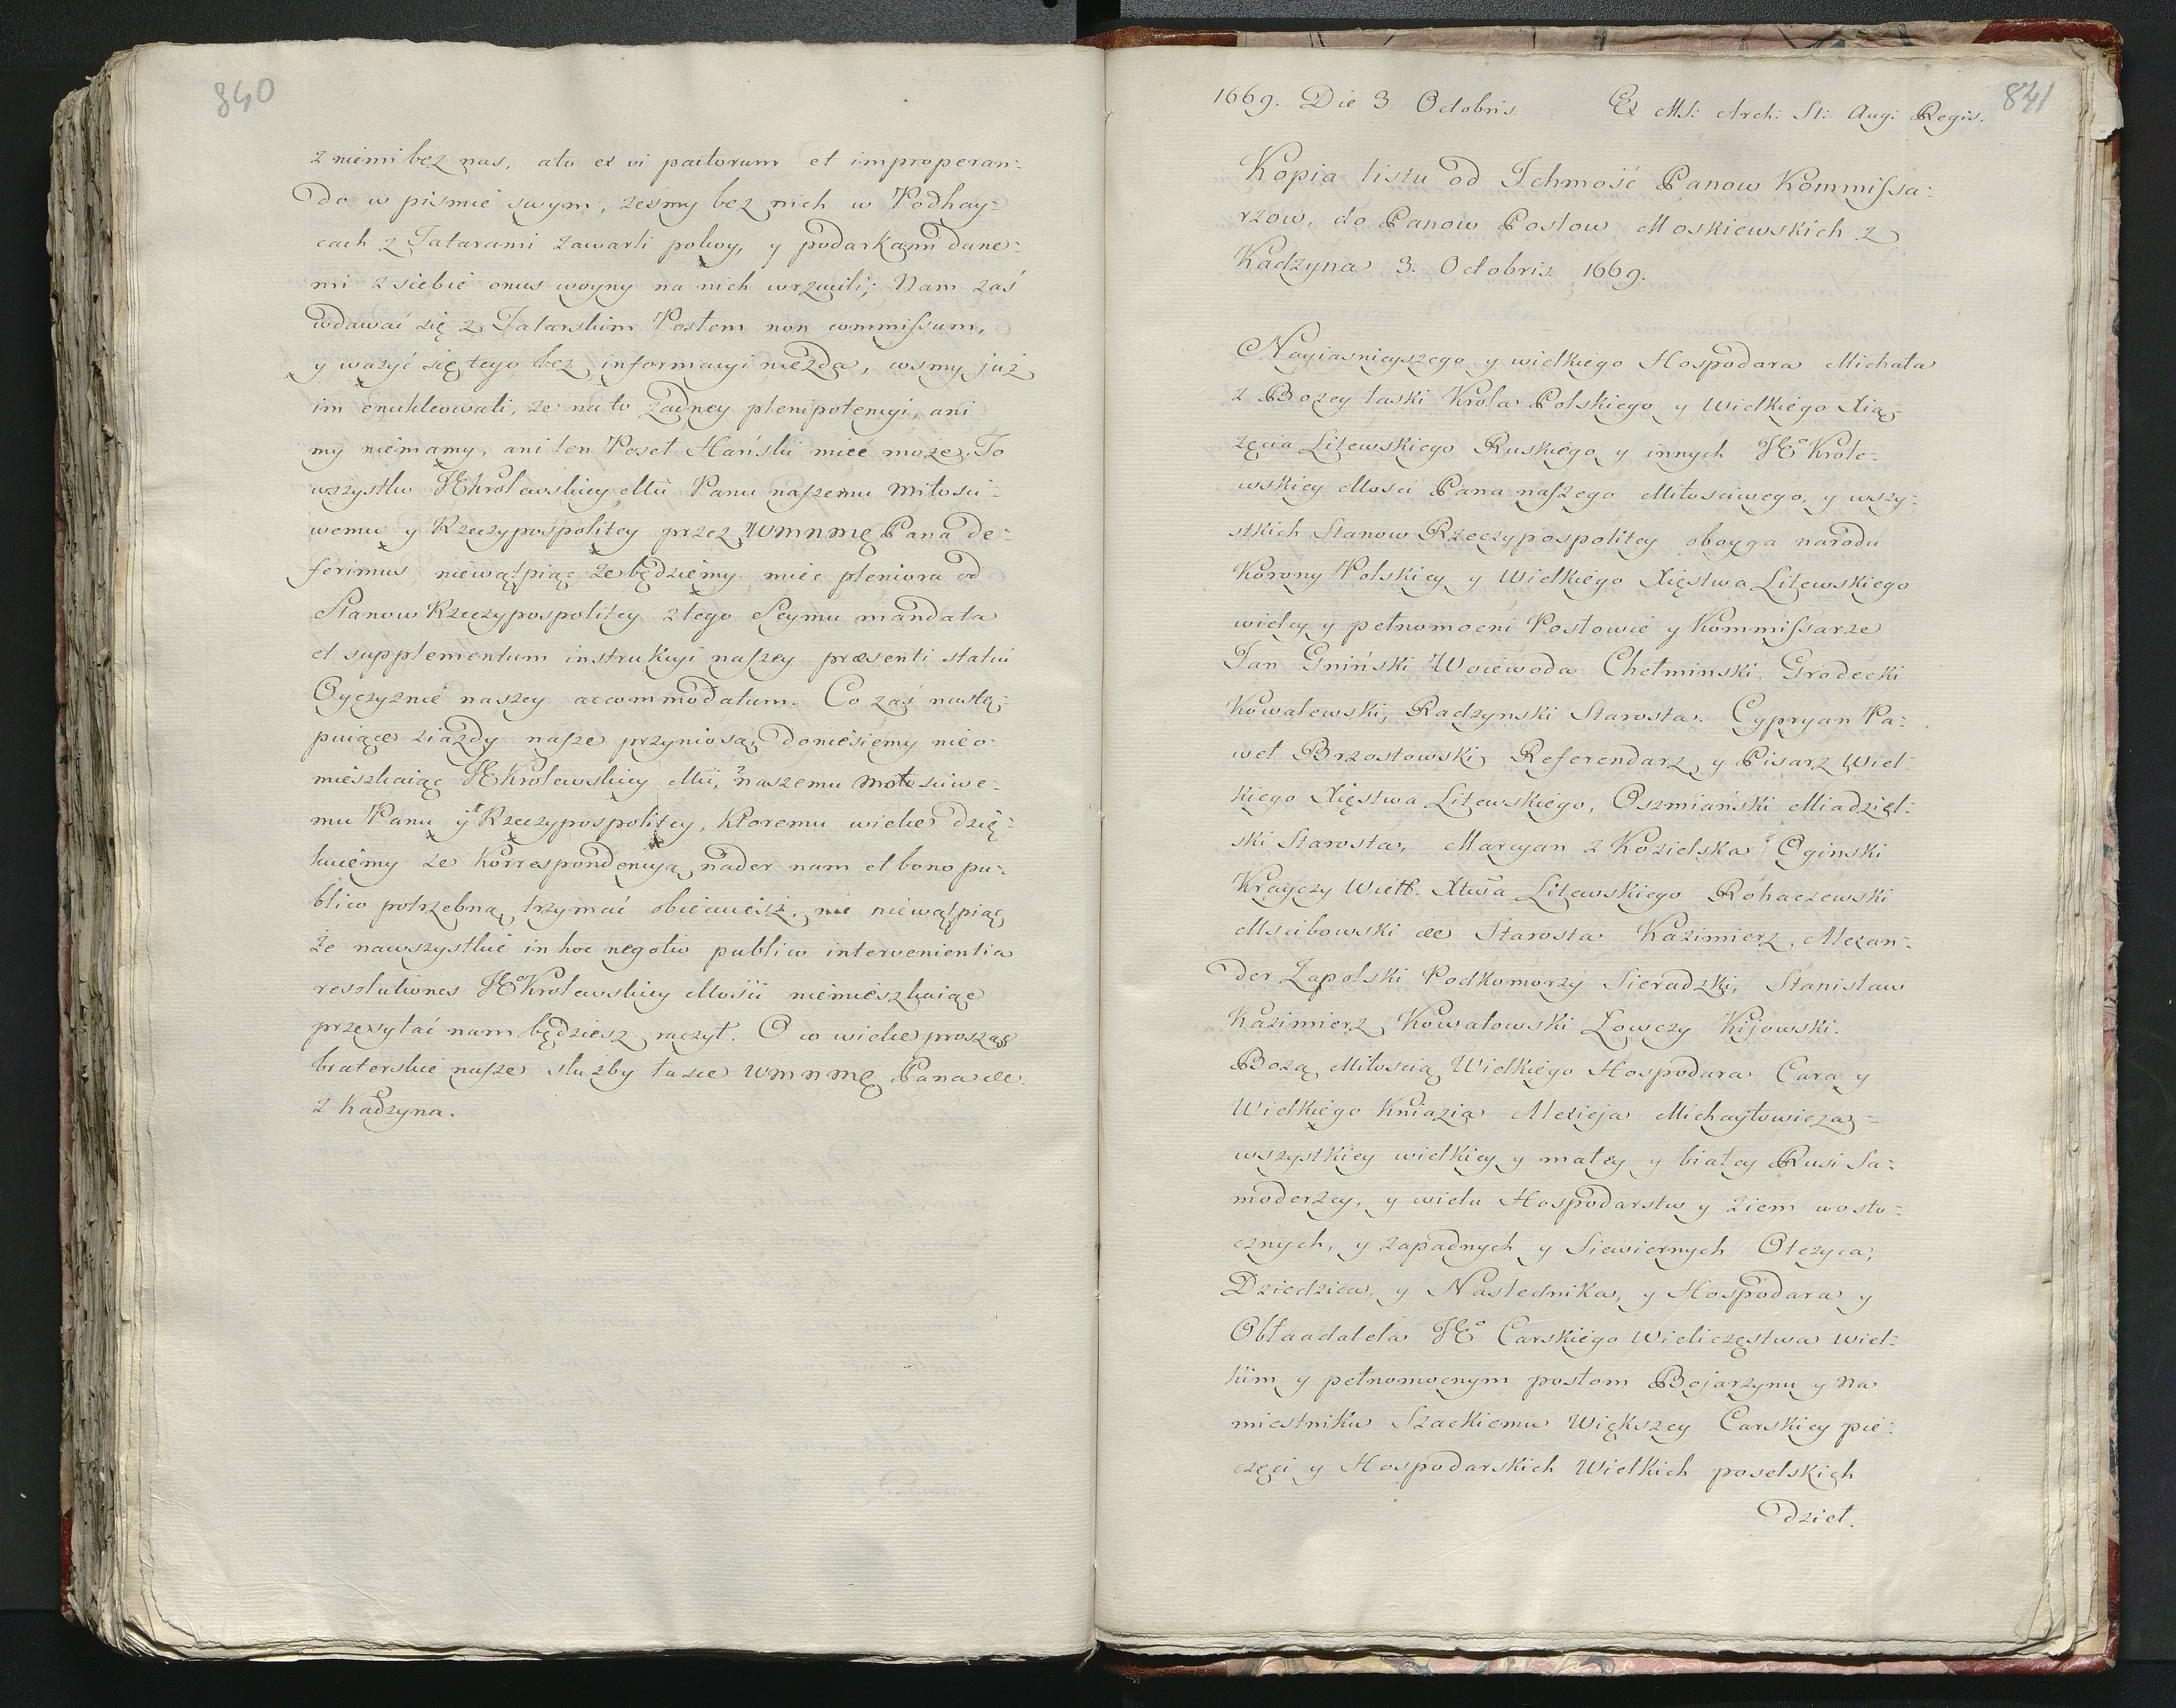 840
z niemi bez nas, ato ex vi pactorum et improperan:
do w pismie swym, żeśmy bez nich w Podhay:
cach z Tatarami zawarli pokoy, y podarkami dane:
mi z siebie onus woyny na nich wrzucili; Nam zaś
wdawać się z Tatarskim Posłem non commissum,
y ważyć się tego bez informacyi niezda, cośmy już
im enukleowali, że na to żadney plenipotencyi, ani
my niemamy, ani ten Poseł Hański mieć może. To
wszystko JEKrolewskiey Mci Panu naszemu Miłości:
wemu y Rzeczypospolitey przez WMNMę Pana de:
ferimus niewątpiąc że będziemy miec pleniora od
Stanow Rzeczypospolitey z tego Seymu mandata
et supplementum instrukcyi naszey præsenti statui
Oyczyznie naszey accommodatum. Co zaś nastę:
puiące ziazdy nasze przyniosą, doniesiemy nieo:
mieszkaiąc JEKrolewskiey Mci, naszemu Miłosciwe:
mu Panu y Rzeczypospolitey, Ktoremu wielce dzię:
kuiemy ze Korrespondencyą nader nam et bono pu:
blico potrzebną trzymać obiecuiesz, niewątpiąc
że nawszystkie in hoc negotio publico intervenientia
resolutiones JEKrolewskiey Mości niemieszkaiąc
przesyłać nam będziesz raczył. O co wielce prosząc
braterskie nasze służby łasce WMNMę Pana &c.
z Kadzyna.
841
1669. Die 3 Octobris. Ex MS: Arch: St: Aug: Regis.
Kopia listu od Ichmość Panow Kommissa:
rzow, do Panow Posłow Moskiewskich z
Kadzyna 3. Octobris 1669.
Nayiasnieyszego y wielkiego Hospodara Michała
z Bozey łaski Krola Polskiego y Wielkiego Xią:
zęcia Litewskiego Ruskiego y innych JEo Krole:
wskiey Mosci Pana naszego Miłosciwego, y wszy:
stkich Stanow Rzeczypospolitey oboyga narodu
Korony Polskiey y Wielkiego Xięstwa Litewskiego
wielcy y pełnomocni Posłowie y Kommissarze
Jan Gniński Woiewoda Chełminski, Grodecki
Kowalewski, Radzynski Starosta. Cypryan Pa:
weł Brzostowski, Referendarz y Pisarz Wiel:
kiego Xięstwa Litewskiego, Oszmiański Miadziel:
ski Starosta, Marcyan z Kozielska Oginski
Krayczy Wielk. Xtwa Litewskiego Rohaczewski
Mscibowski &c Starosta Kazimierz, Alexan:
der Zapolski Podkomorzy Sieradzki, Stanisław
Kazimierz Kowalowski Łowczy Kijowski.
Bozą Miłoscią Wielkiego Hospodara Cara y
Wielkiego Kniazia Alexieja Michayłowicza
wszystkiey wielkiey y małey y białey Rusi Sa:
moderzcy, y wielu Hospodarstw y ziem wosto:
cznych, y zapadnych y Siewiernych Otczyca,
Dziedzica, y Nasłednika, y Hospodara y
Obłaadatela JEo Carskiego Wieliczęstwa wiel:
kim y pełnomocnym posłom Bojarzynu y Na
miestniku Szackiemu Większey Carskiey pie:
częci y Hospodarskich Wielkich poselskich
dzieł.